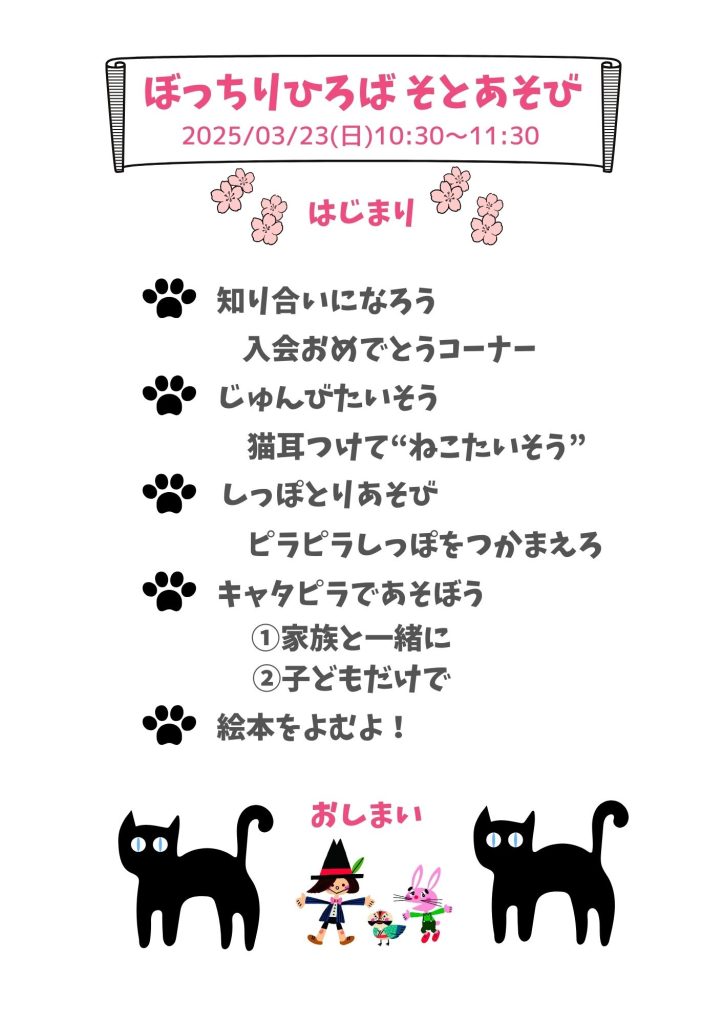 ぼっちりひろば そとあそび
2025/03/23(日)10:30〜11:30
はじまり
知り合いになろう
入会おめでとうコーナー
じゅんびたいそう
猫耳つけて“ねこたいそう”
しっぽとりあそび
ピラピラしっぽをつかまえろ
キャタピラであそぼう
①家族と一緒に
②子どもだけで
絵本をよむよ！
おしまい